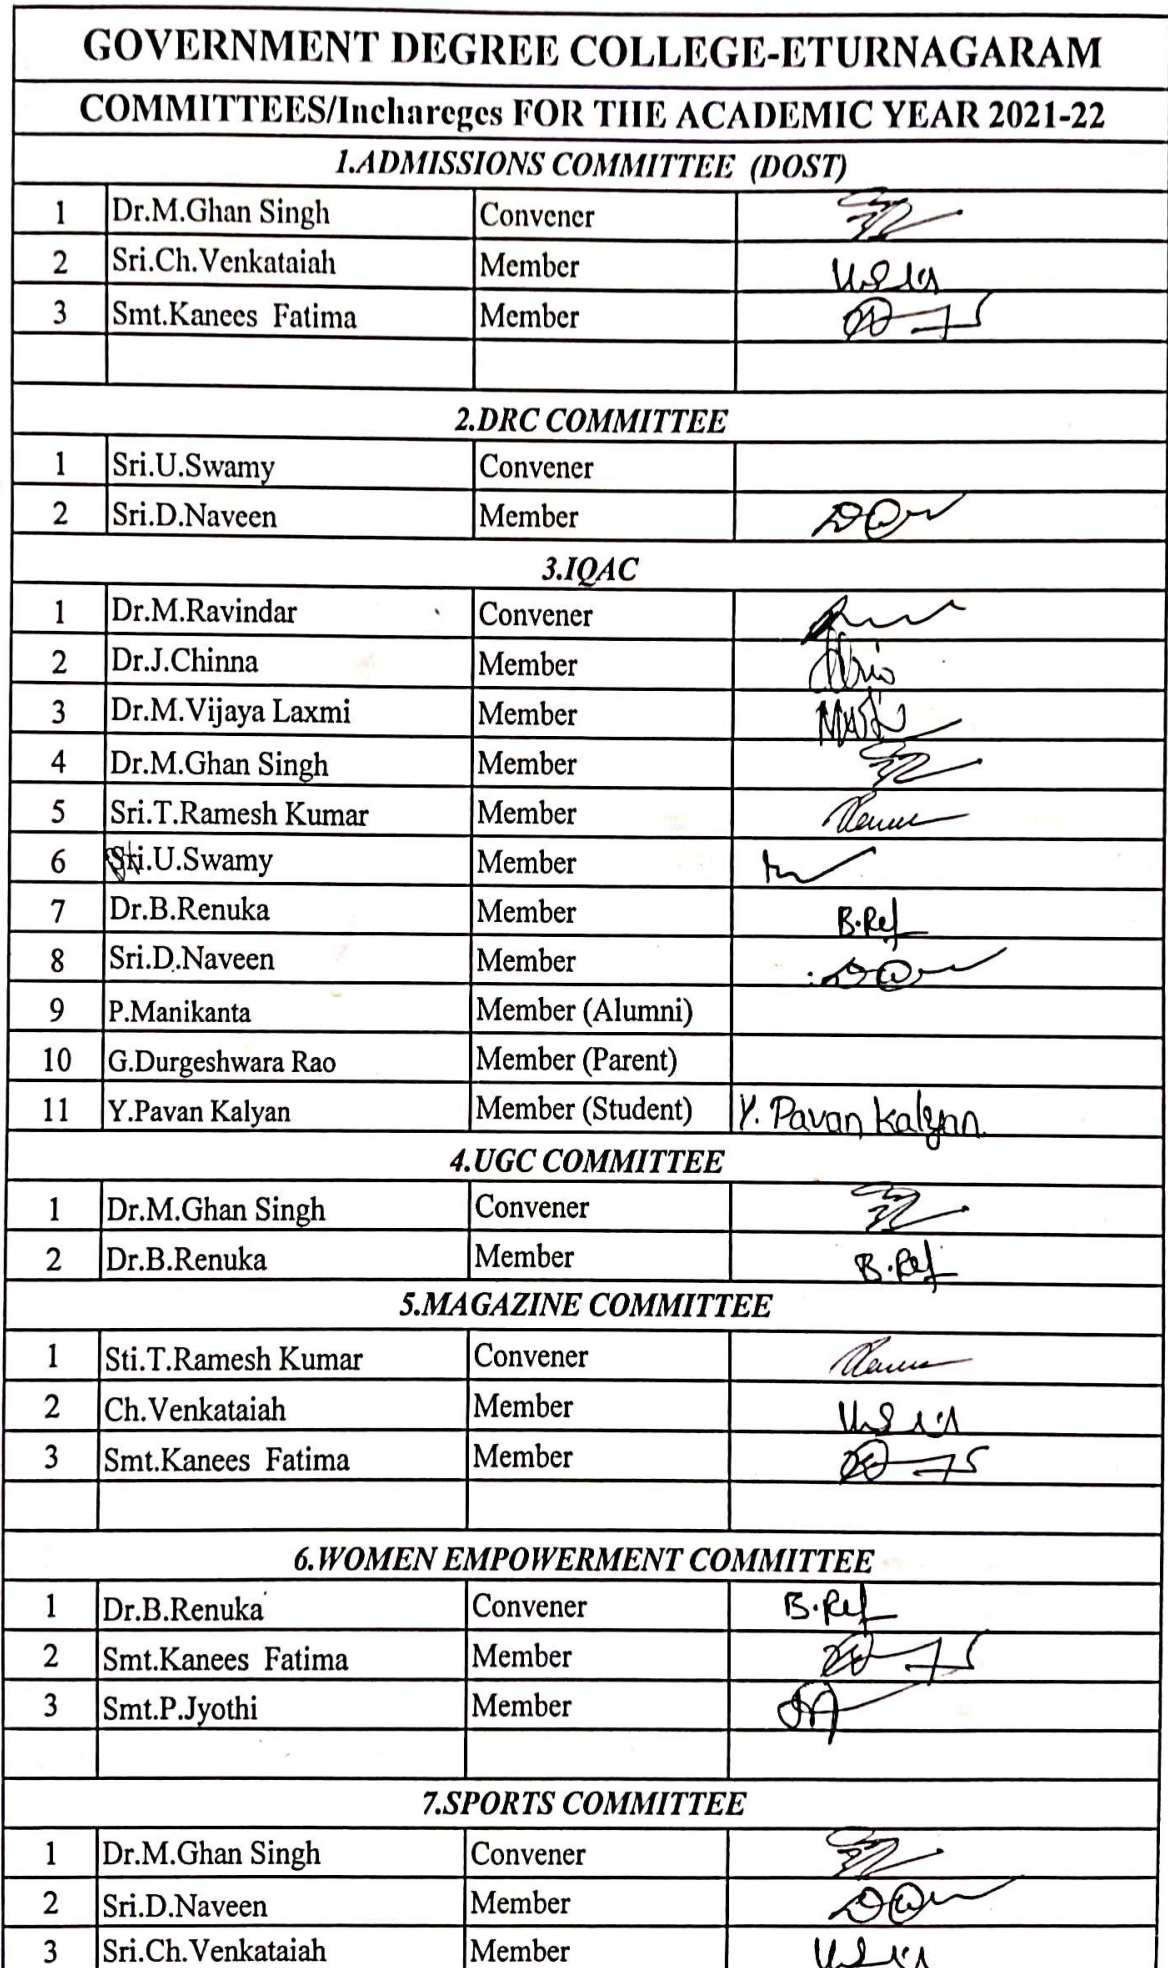 GOVERNMENT DEGREE COLLEGE-ETURNAGARAM
COMMITTEES/Inchareges FOR THE ACADEMIC YEAR 2021-22
1.ADMISSIONS COMMITTEE (DOST)
1 Dr.M.Ghan Singh Convener
2 Sri.Ch.Venkataiah Member
3 Smt.Kanees Fatima Member
2.DRC COMMITTEE
1 Sri.U.Swamy Convener
2 Sri.D.Naveen Member
3.IQAC
1 Dr.M.Ravindar Convener
2 Dr.J.Chinna Member
3 Dr.M.Vijaya Laxmi Member
4 Dr.M.Ghan Singh Member
5 Sri.T.Ramesh Kumar Member
6 Sti.U.Swamy Member
7 Dr.B.Renuka Member B.Ref
8 Sri.D.Naveen Member
9 P.Manikanta Member (Alumni)
10 G.Durgeshwara Rao Member (Parent)
11 Y.Pavan Kalyan Member (Student) Y. Pavan Kalyan
4.UGC COMMITTEE
1 Dr.M.Ghan Singh Convener
2 Dr.B.Renuka Member B.Ref
5.MAGAZINE COMMITTEE
1 Sti.T.Ramesh Kumar Convener
2 Ch.Venkataiah Member
3 Smt.Kanees Fatima Member
6.WOMEN EMPOWERMENT COMMITTEE
1 Dr.B.Renuka Convener B.Ref
2 Smt.Kanees Fatima Member
3 Smt.P.Jyothi Member
7.SPORTS COMMITTEE
1 Dr.M.Ghan Singh Convener
2 Sri.D.Naveen Member
3 Sri.Ch.Venkataiah Member